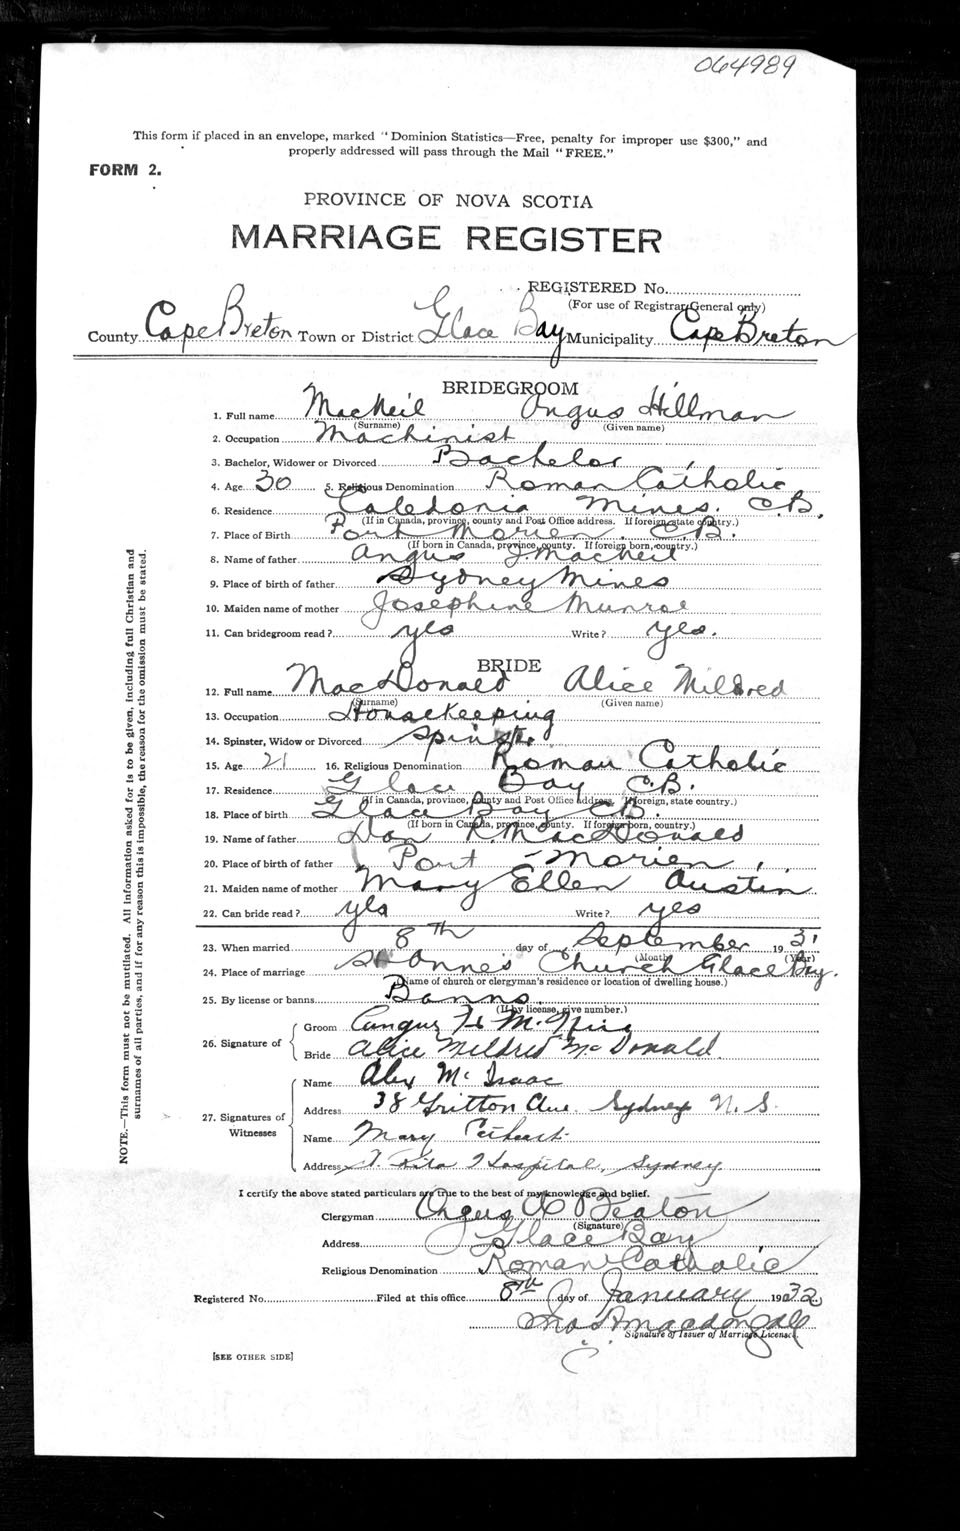 064989
This form if placed in an envelope, marked "Dominion Statistics—Free, penalty for improper use $300," and
properly addressed will pass through the Mail "FREE."
FORM 2.
PROVINCE OF NOVA SCOTIA
MARRIAGE REGISTER
REGISTERED No.
(For use of Registrar General only)
County Cape Breton Town or District Glace Bay Municipality Cape Breton
BRIDEGROOM
1. Full name MacNeil Angus Hillman
(Surname) (Given name)
2. Occupation Machinist
3. Bachelor, Widower or Divorced Bachelor
4. Age 30 5. Religious Denomination Roman Catholic
6. Residence Caledonia Mines. C.B.
(If in Canada, province, county and Post Office address. If foreign, state country.)
7. Place of Birth Port Morien. C.B.
(If born in Canada, province, county. If foreign born, country.)
8. Name of father Angus J. MacNeil
9. Place of birth of father Sydney Mines
10. Maiden name of mother Josephine Munroe
11. Can bridegroom read? yes Write? yes.
BRIDE
12. Full name MacDonald Alice Mildred
(Surname) (Given name)
13. Occupation Housekeeping
14. Spinster, Widow or Divorced Spinster
15. Age 21 16. Religious Denomination Roman Catholic
17. Residence Glace Bay C.B.
(If in Canada, province, county and Post Office address. If foreign, state country.)
18. Place of birth Glace Bay C.B.
(If born in Canada, province, county. If foreign born, country.)
19. Name of father Dan R. MacDonald
20. Place of birth of father Port - Morien
21. Maiden name of mother Mary Ellen Austin
22. Can bride read? yes Write? yes
23. When married 8th day of September 1931
(Month) (Year)
24. Place of marriage St Anne's Church Glace Bay.
(Name of church or clergyman's residence or location of dwelling house.)
25. By license or banns Banns.
(If by license, give number.)
26. Signature of
Groom Angus H.
Bride Alice Mildred McDonald.
27. Signatures of Witnesses
Name Alex McIsaac
Address 38 Ave. Sydney N.S.
Name Mary
Address St. Rita Hospital, Sydney
I certify the above stated particulars are true to the best of my knowledge and belief.
Clergyman Angus Beaton
(Signature)
Address Glace Bay
Religious Denomination Roman Catholic
Registered No. Filed at this office 8th day of January 1932
Signature of Issuer of Marriage License.
[SEE OTHER SIDE]
NOTE.—This form must not be mutilated. All information asked for is to be given, including full Christian and
surnames of all parties, and if for any reason this is impossible, the reason for the omission must be stated.